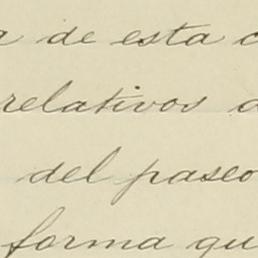 a de esta c
relativos a
del paseo
forma qu